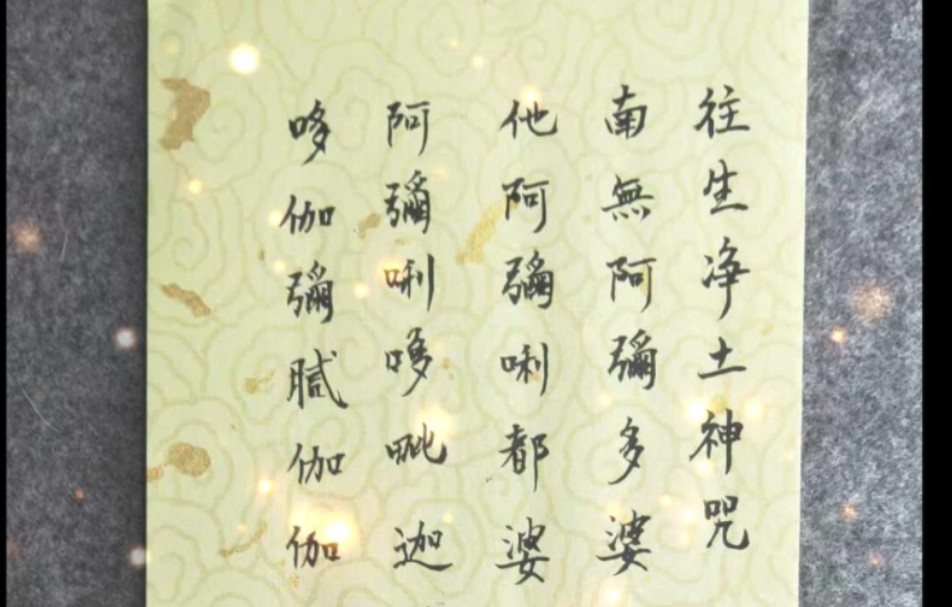 往生净土神咒
南無阿彌多婆
他阿彌唎都婆
阿彌唎哆毗迦
哆伽彌膩伽伽